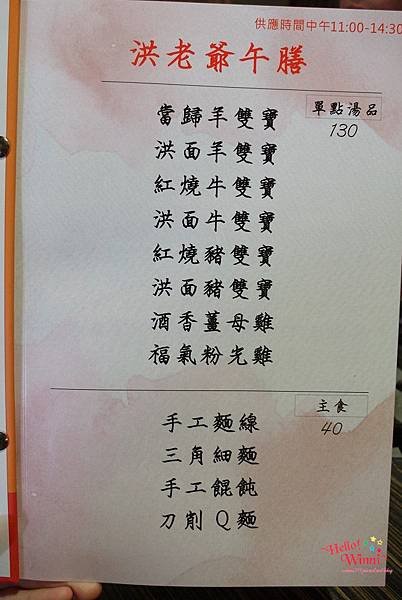 供應時間中午11:00-14:30
洪老爺午膳
單點湯品
130
當歸羊雙寶
洪面羊雙寶
紅燒牛雙寶
洪面牛雙寶
紅燒豬雙寶
洪面豬雙寶
酒香薑母雞
福氣粉光雞
主食
40
手工麵線
三角細麵
手工餛飩
刀削Q麵
Hello!
Winni